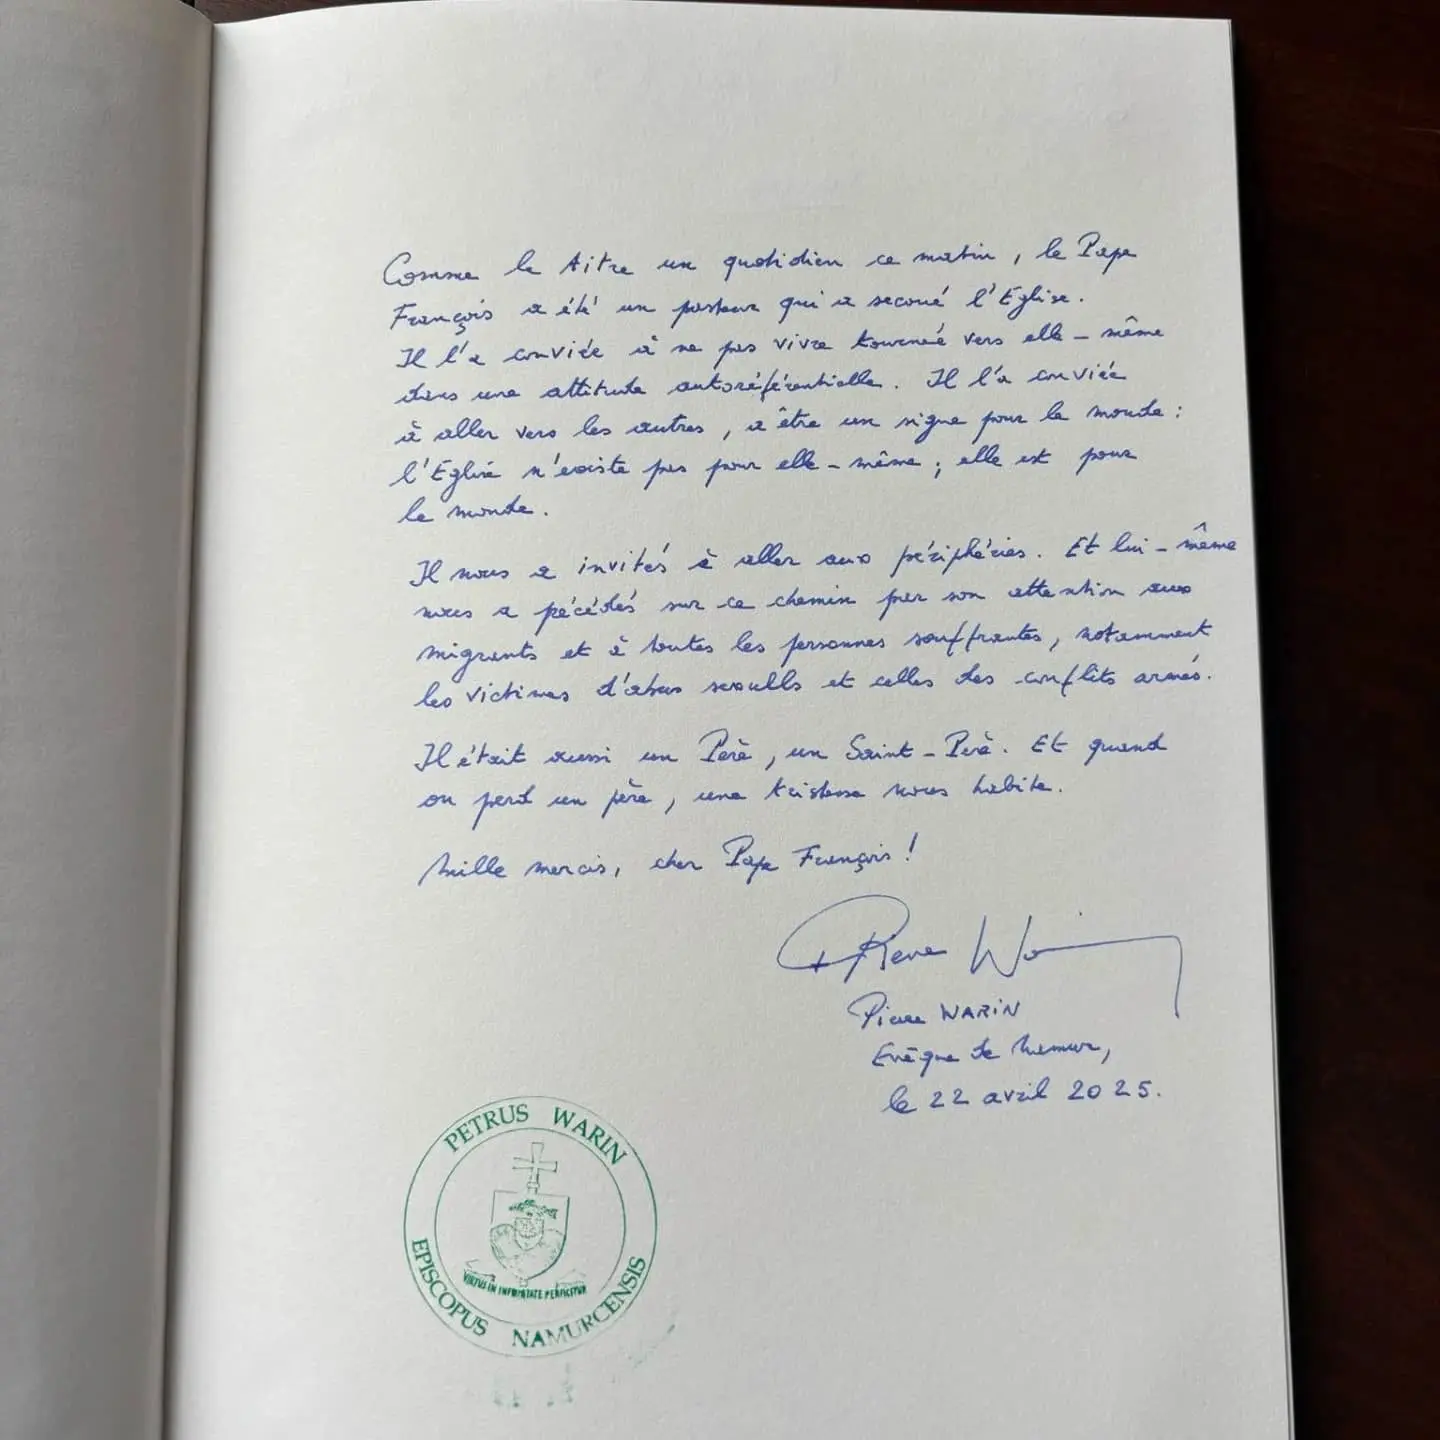 Comme le titre un quotidien ce matin, le Pape
François a été un pasteur qui a secoué l'Eglise.
Il l'a conviée à ne pas vivre tournée vers elle-même
dans une attitude autoréférentielle. Il l'a conviée
à aller vers les autres, a être un signe pour le monde :
l'Eglise n'existe pas pour elle-même, elle est pour
le monde.
Il nous a invités à aller aux périphéries. Et lui-même
nous a précédés sur ce chemin par son attention aux
migrants et à toutes les personnes souffrantes, notamment
les victimes d'abus sexuels et celles des conflits armés.
Il était aussi un Père, un Saint-Père. Et quand
on perd un père, une tristesse nous habite.
Mille mercis, cher Pape François !
+ Pierre Warin
Pierre WARIN
Evêque de Namur,
le 22 avril 2025.
PETRUS WARIN
VIRTUS IN INFIRMITATE PERFICITUR
EPISCOPUS NAMURCENSIS